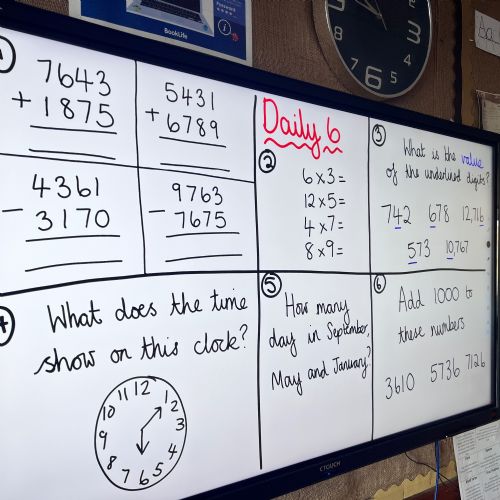 BookLife
i
1
7643
+ 1875
5431
+ 6789
4361
- 3170
9763
- 7675
Daily 6
2
6 x 3 =
12 x 5 =
4 x 7 =
8 x 9 =
3
What is the value
of the underlined digits?
742 678 12,716
573 10,767
4
What does the time
show on this clock?
12
1
2
3
4
5
6
7
8
9
10
11
5
How many
day in September,
May and January?
6
Add 1000 to
these numbers
3610 5736 7126
CTOUCH